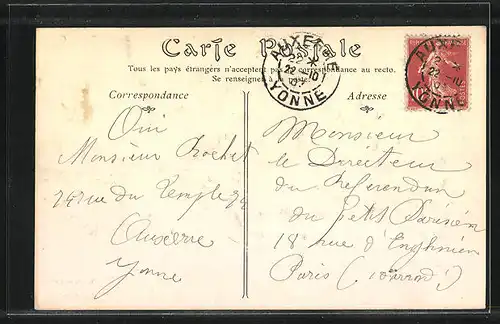 Carte Postale
Tous les pays étrangers n'acceptent pas la correspondance au recto.
Se renseigner à la poste.
Correspondance
Adresse
AUXERRE
22 *
22 - 10
YONNE
AUXE
22 - 10
YONNE
POSTES
Oui
Monsieur Rochet
24 rue du Temple 24
Auxerre
Yonne
Monsieur
le Directeur
du Referendum
du Petit Parisien
18 rue d'Enghien
Paris (